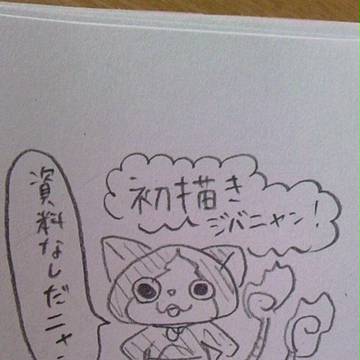 初描き
ジバニャン!
資料なしだニャン